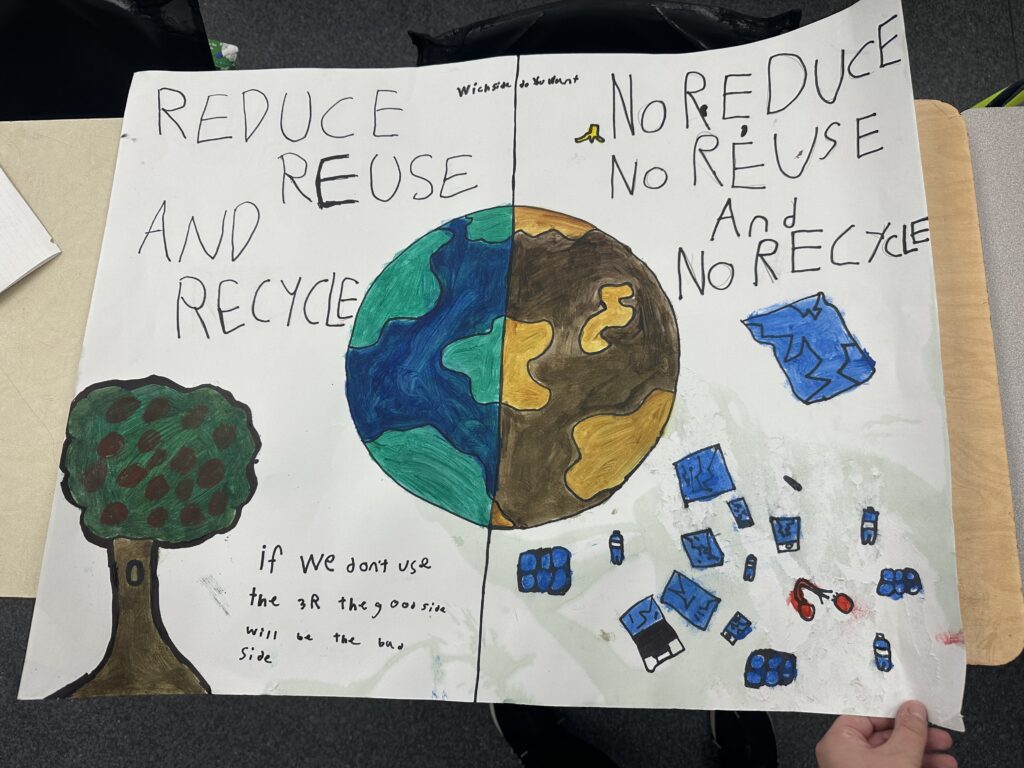 Wich side do You Want
REDUCE
REUSE
AND
RECYCLE
NO REDUCE
NO REUSE
And
NO RECYCLE
if we don't use
the 3R the good side
will be the bad
side